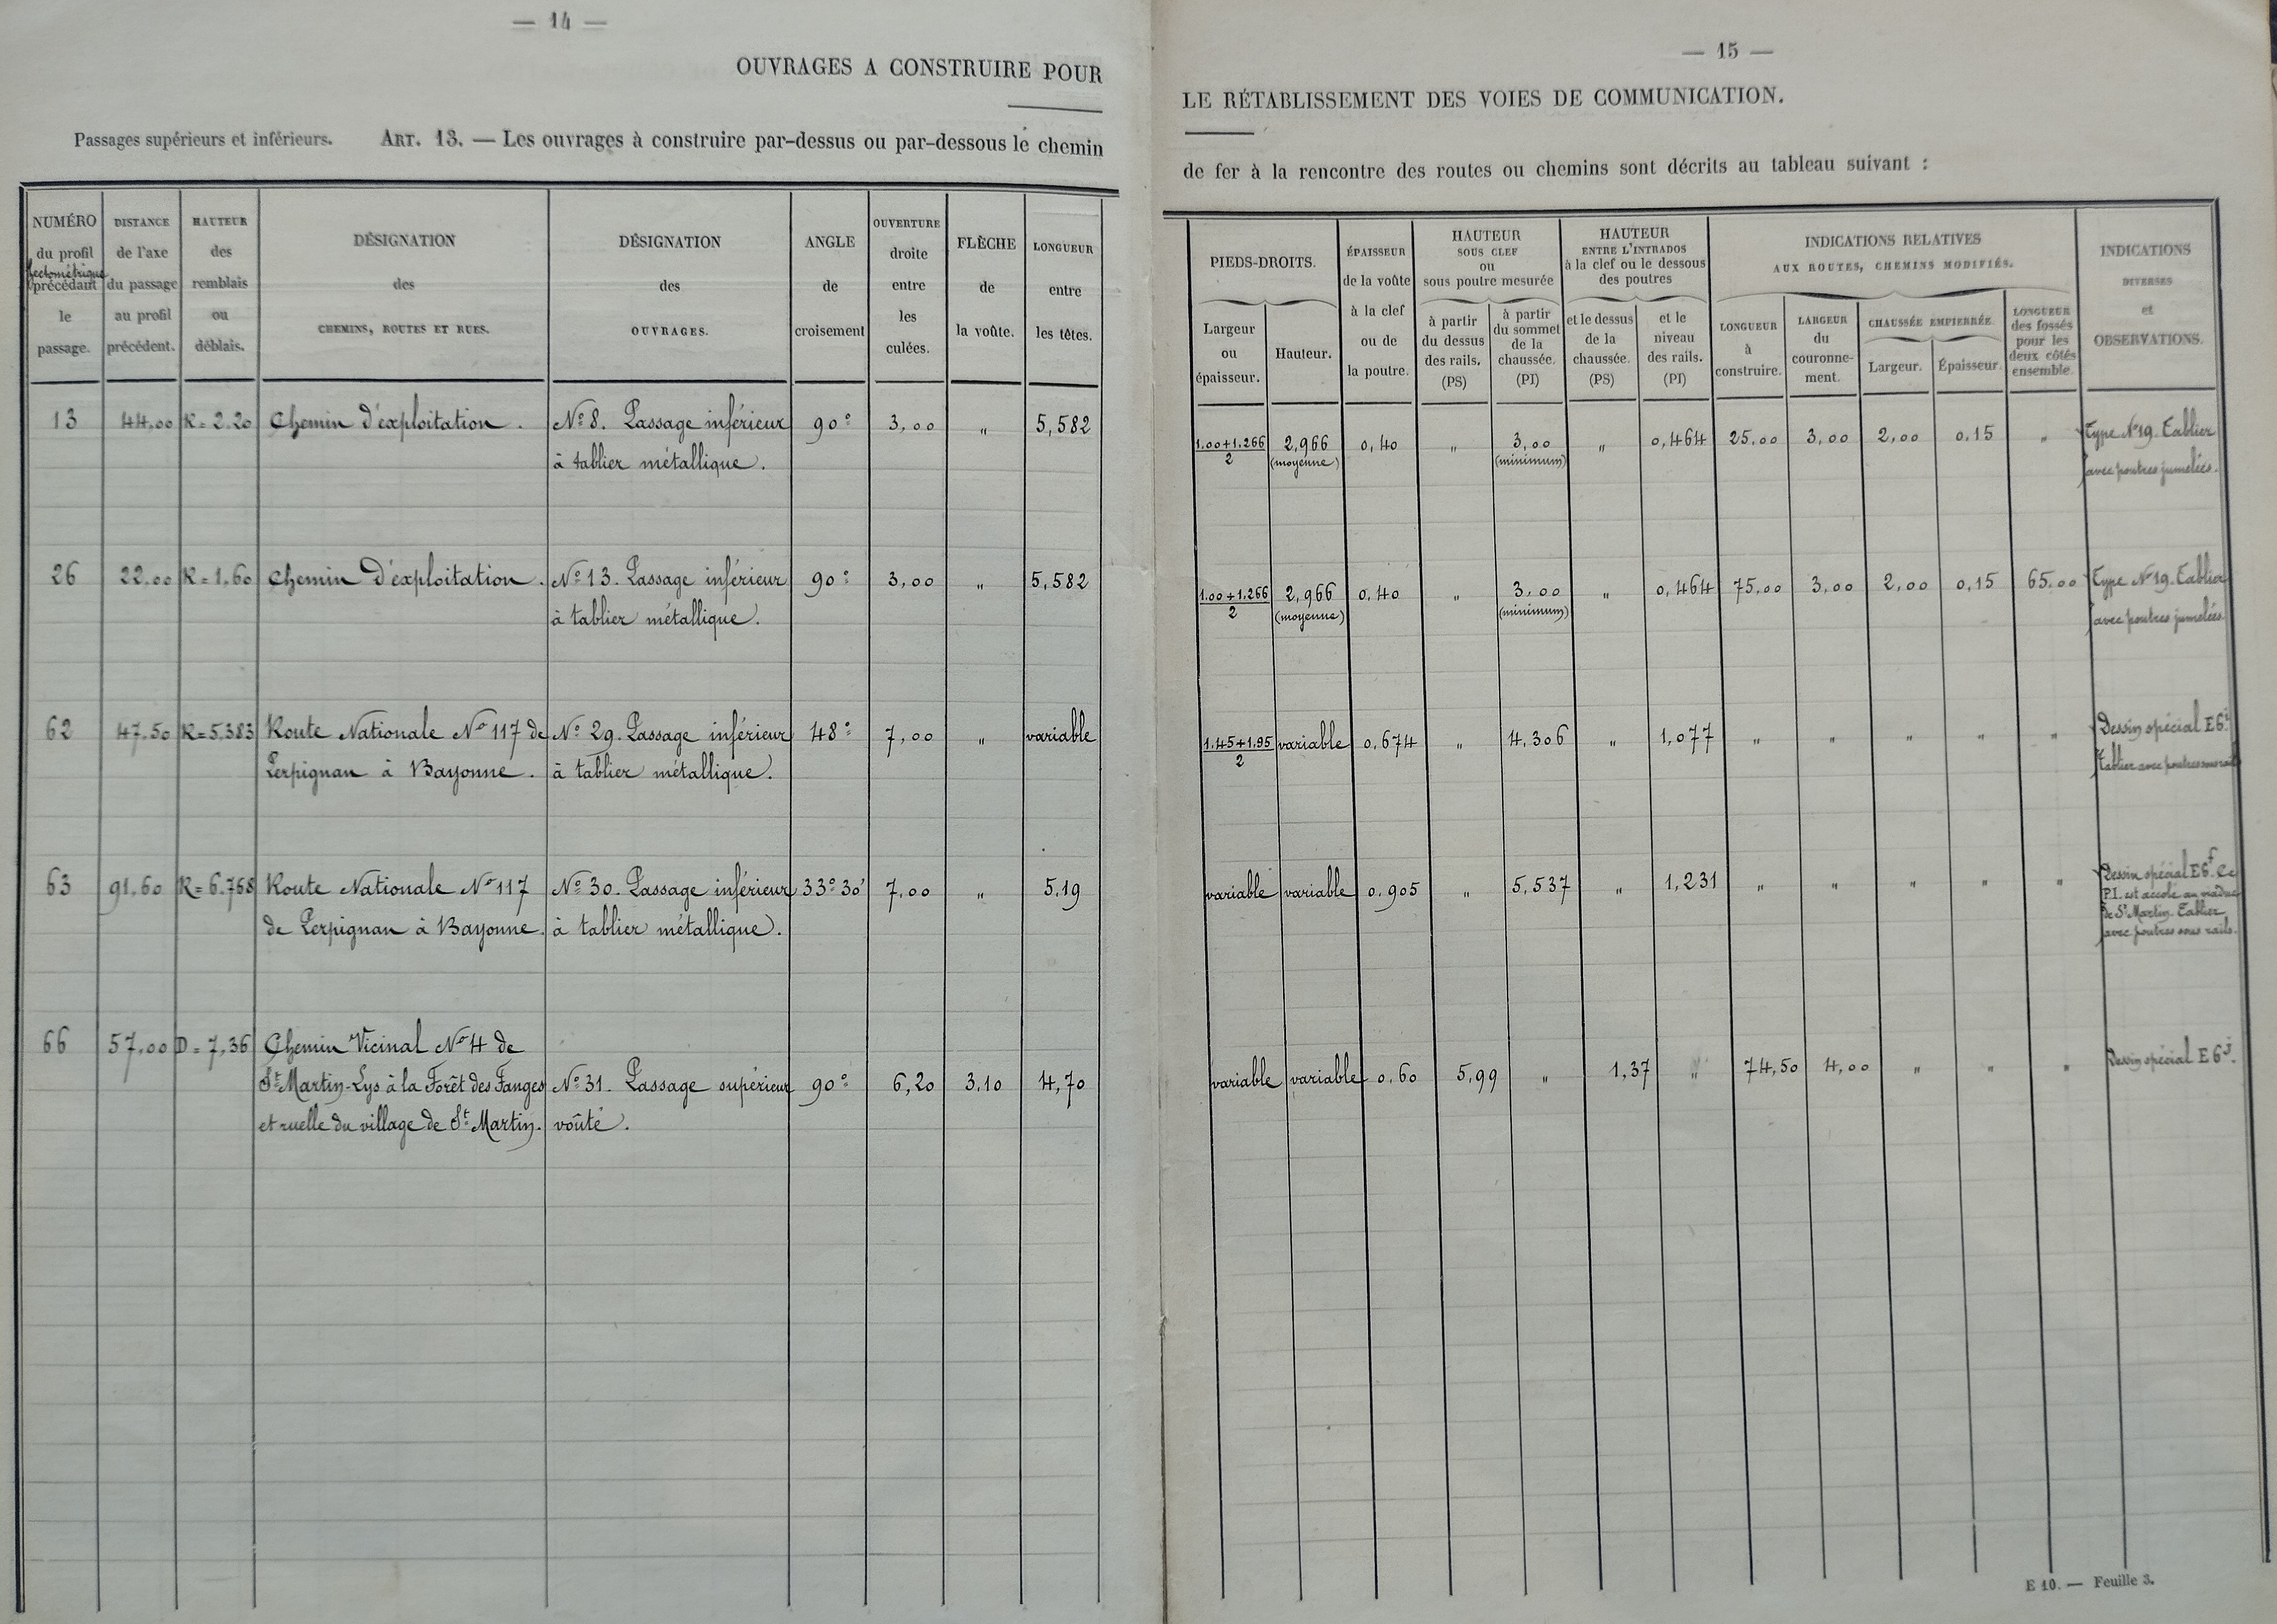 — 14 —
OUVRAGES A CONSTRUIRE POUR
Passages supérieurs et inférieurs. ART. 13. — Les ouvrages à construire par-dessus ou par-dessous le chemin
NUMÉRO du profil hectométrique précédant le passage.
DISTANCE de l'axe du passage au profil précédent.
HAUTEUR des remblais ou déblais.
DÉSIGNATION des CHEMINS, ROUTES ET RUES.
DÉSIGNATION des OUVRAGES.
ANGLE de croisement
OUVERTURE droite entre les culées.
FLÈCHE de la voûte.
LONGUEUR entre les têtes.
13 44.00 R = 2.20 Chemin d'exploitation. N° 8. Passage inférieur 90° 3,00 " 5,582
à tablier métallique.
26 22.00 R = 1.60 Chemin d'exploitation. N° 13. Passage inférieur 90° 3,00 " 5,582
à tablier métallique.
62 47.50 R = 5.383 Route Nationale N° 117 de N° 29. Passage inférieur 48° 7,00 " variable
Perpignan à Bayonne. à tablier métallique.
63 91.60 R = 6.768 Route Nationale N° 117 N° 30. Passage inférieur 33° 30' 7,00 " 5.19
de Perpignan à Bayonne. à tablier métallique.
66 57.00 D = 7,36 Chemin Vicinal N° 4 de
St Martin-Lys à la Forêt des Fanges N° 31. Passage supérieur 90° 6,20 3,10 4,70
et ruelle du village de St Martin. voûté.
— 15 —
LE RÉTABLISSEMENT DES VOIES DE COMMUNICATION.
de fer à la rencontre des routes ou chemins sont décrits au tableau suivant :
PIEDS-DROITS.
Largeur ou épaisseur.
Hauteur.
ÉPAISSEUR de la voûte à la clef ou de la poutre.
HAUTEUR SOUS CLEF ou sous poutre mesurée
à partir du dessus des rails. (PS)
à partir du sommet de la chaussée. (PI)
HAUTEUR ENTRE L'INTRADOS à la clef ou le dessous des poutres
et le dessus de la chaussée. (PS)
et le niveau des rails. (PI)
INDICATIONS RELATIVES AUX ROUTES, CHEMINS MODIFIÉS.
LONGUEUR à construire.
LARGEUR du couronne-ment.
CHAUSSÉE EMPIERRÉE
Largeur.
Épaisseur.
LONGUEUR des fossés pour les deux côtés ensemble.
INDICATIONS DIVERSES et OBSERVATIONS.
1.00+1.266 2,966 0,40 " 3,00 " 0,464 25.00 3,00 2,00 0.15 " Type N° 19. Tablier
2 (moyenne) (minimum) avec poutres jumelées.
1.00+1.266 2,966 0.40 " 3,00 " 0,464 75.00 3,00 2,00 0,15 65.00 Type N° 19. Tablier
2 (moyenne) (minimum) avec poutres jumelées.
1.45+1.95 variable 0.674 " 4,306 " 1,077 " " " " " Dessin spécial E6i
2 Tablier avec poutres sous rails
variable variable 0.905 " 5,537 " 1,231 " " " " " Dessin spécial E6f. Ce
P.I. est accolé au viaduc
de St Martin. Tablier
avec poutres sous rails.
variable variable 0.60 5,99 " 1,37 " 74,50 4,00 " " " Dessin spécial E6j.
E 10. — Feuille 3.